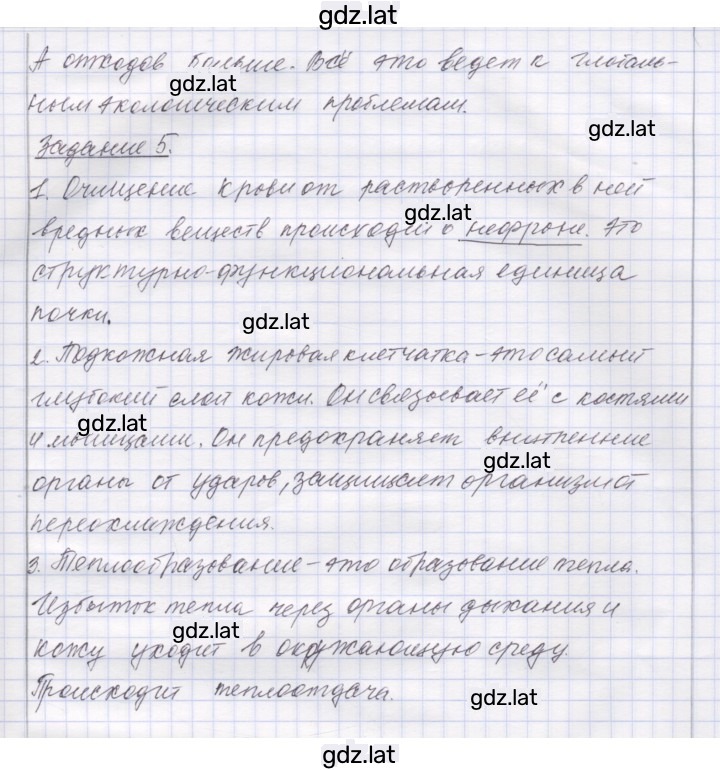 gdz.lat
А отходов больше. Всё это ведет к глобаль-
gdz.lat
ным экологическим проблемам.
gdz.lat
Задание 5.
1. Очищение крови от растворенных в ней
gdz.lat
вредных веществ происходит в нефроне. Это
структурно-функциональная единица
почки.
gdz.lat
2. Подкожная жировая клетчатка - это самый
глубокий слой кожи. Он связывает её с костями
gdz.lat
и мышцами. Он предохраняет внутренние
gdz.lat
органы от ударов, защищает организм от
переохлаждения.
3. Теплообразование - это образование тепла.
Избыток тепла через органы дыхания и
gdz.lat
кожу уходит в окружающую среду.
Происходит теплоотдача.
gdz.lat
gdz.lat